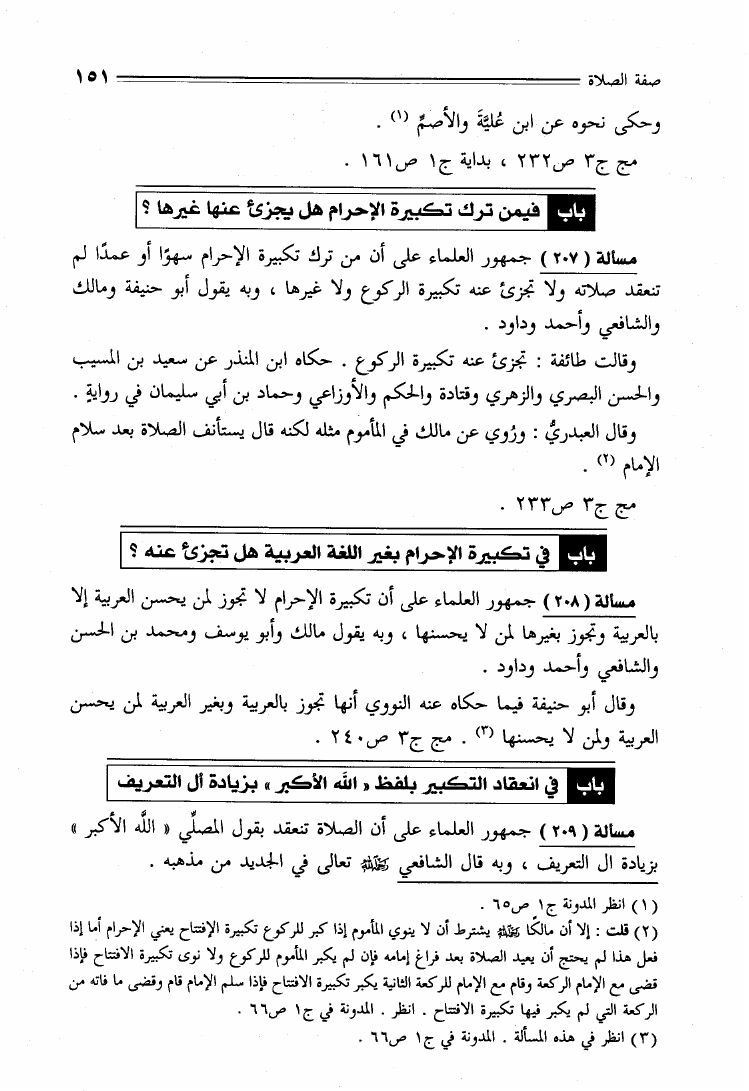 صفة الصلاة ١٥١
وحكى نحوه عن ابن عُليَّةَ والأصمِّ (١) .
مج ج٣ ص٢٣٢ ، بداية ج١ ص١٦١ .
باب فيمن ترك تكبيرة الإحرام هل يجزئ عنها غيرها ؟
مسألة (٢٠٧) جمهور العلماء على أن من ترك تكبيرة الإحرام سهوًا أو عمدًا لم
تنعقد صلاته ولا تجزئ عنه تكبيرة الركوع ولا غيرها ، وبه يقول أبو حنيفة ومالك
والشافعي وأحمد وداود .
وقالت طائفة : تجزئ عنه تكبيرة الركوع . حكاه ابن المنذر عن سعيد بن المسيب
والحسن البصري والزهري وقتادة والحكم والأوزاعي وحماد بن أبي سليمان في روايةٍ .
وقال العبدريُّ : ورُوي عن مالك في المأموم مثله لكنه قال يستأنف الصلاة بعد سلام
الإمام (٢) .
مج ج٣ ص٢٣٣ .
باب في تكبيرة الإحرام بغير اللغة العربية هل تجزئ عنه ؟
مسألة (٢٠٨) جمهور العلماء على أن تكبيرة الإحرام لا تجوز لمن يحسن العربية إلا
بالعربية وتجوز بغيرها لمن لا يحسنها ، وبه يقول مالك وأبو يوسف ومحمد بن الحسن
والشافعي وأحمد وداود .
وقال أبو حنيفة فيما حكاه عنه النووي أنها تجوز بالعربية وبغير العربية لمن يحسن
العربية ولمن لا يحسنها (٣) . مج ج٣ ص٢٤٠ .
باب في انعقاد التكبير بلفظ « الله الأكبر » بزيادة أل التعريف
مسألة (٢٠٩) جمهور العلماء على أن الصلاة تنعقد بقول المصلِّي « اللَّه الأكبر »
بزيادة ال التعريف ، وبه قال الشافعي رحمه الله تعالى في الجديد من مذهبه .
(١) انظر المدونة ج١ ص٦٥ .
(٢) قلت : إلا أن مالكًا رحمه الله يشترط أن لا ينوي المأموم إذا كبر للركوع تكبيرة الإفتتاح يعني الإحرام أما إذا
فعل هذا لم يحتج أن يعيد الصلاة بعد فراغ إمامه فإن لم يكبر المأموم للركوع ولا نوى تكبيرة الافتتاح فإذا
قضى مع الإمام الركعة وقام مع الإمام للركعة الثانية يكبر تكبيرة الافتتاح فإذا سلم الإمام قام وقضى ما فاته من
الركعة التي لم يكبر فيها تكبيرة الافتتاح . انظر . المدونة في ج١ ص٦٦ .
(٣) انظر في هذه المسألة . المدونة في ج١ ص٦٦ .